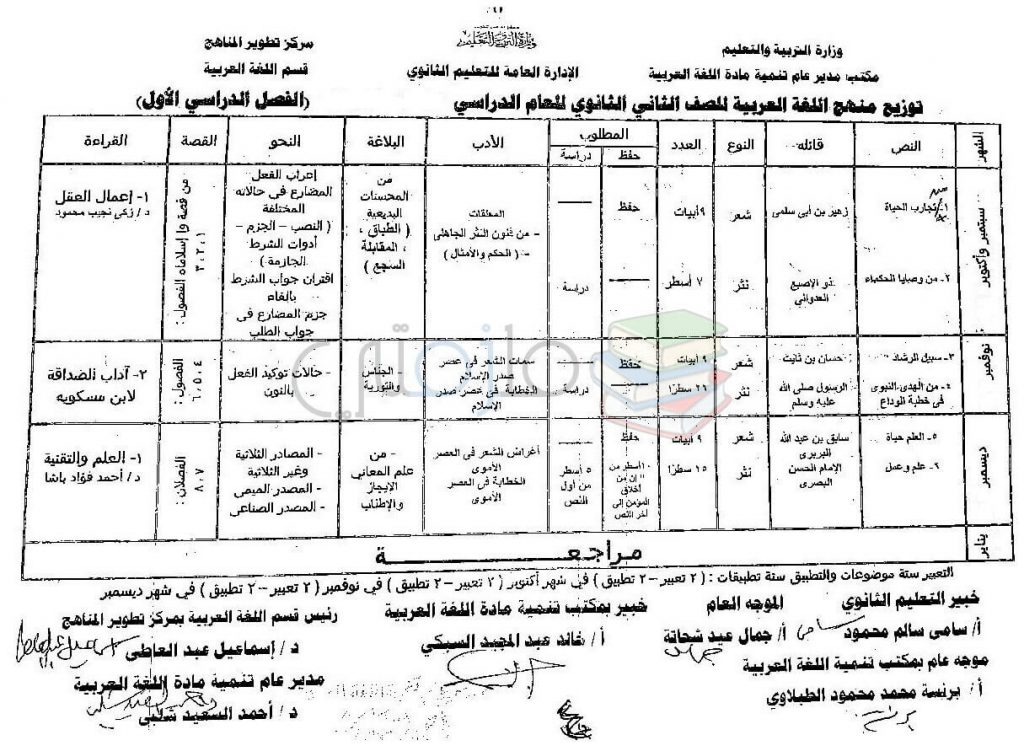 وزارة التربية والتعليم
مكتب مدير عام تنمية مادة اللغة العربية
وزارة التربية والتعليم
الإدارة العامة للتعليم الثانوي
مركز تطوير المناهج
قسم اللغة العربية
توزيع منهج اللغة العربية للصف الثاني الثانوي للعام الدراسي (الفصل الدراسي الأول)
الشهر النص قائله النوع العدد المطلوب الأدب البلاغة النحو القصة القراءة
حفظ دراسة
سبتمبر وأكتوبر
١- تجارب الحياة
زهير بن أبى سلمى
شعر
٩ أبيات
حفظ
٢- من وصايا الحكماء
ذو الإصبع
العدوانى
نثر
٧ أسطر
دراسة
المعلقات
- من فنون النثر الجاهلى
- ( الحكم والأمثال )
من
المحسنات
البديعية
( الطباق ،
المقابلة ،
السجع )
إعراب الفعل
المضارع فى حالاته
المختلفة
( النصب - الجزم -
أدوات الشرط
الجازمة )
اقتران جواب الشرط
بالفاء
جزم المضارع فى
جواب الطلب
من قصة وا إسلاماه الفصول :
١ ، ٢ ، ٣
١- إعمال العقل
د/ زكى نجيب محمود
نوفمبر
٣- سبيل الرشاد
حسان بن ثابت
شعر
٩ أبيات
حفظ
٤- من الهدى النبوى
فى خطبة الوداع
الرسول صلى الله
عليه وسلم
نثر
٢٦ سطرا
دراسة
سمات الشعر فى عصر
صدر الإسلام
الخطابة فى عصر صدر
الإسلام
الجناس
والتورية
- حالات توكيد الفعل
بالنون
الفصول :
٤ ، ٥ ، ٦
٢- آداب الصداقة
لابن مسكويه
مازمتي
ديسمبر
٥- العلم حياة
سابق بن عبد الله
البربرى
شعر
٩ أبيات
حفظ
٦- علم وعمل
الإمام الحسن
البصرى
نثر
١٥ سطرا
١٠ أسطر من
" إن من
أخلاق
المؤمن إلى
آخر النص
٥ أسطر
من أول
النص
أغراض الشعر فى العصر
الأموى
الخطابة فى العصر
الأموى
- من
علم المعاني
الإيجاز
والإطناب
- المصادر الثلاثية
وغير الثلاثية
- المصدر الميمى
- المصدر الصناعى
الفصلان :
٧ ، ٨
١- العلم والتقنية
د/ أحمد فؤاد باشا
يناير
مراجعة
التعبير ستة موضوعات والتطبيق ستة تطبيقات : ( ٢ تعبير - ٢ تطبيق ) في شهر أكتوبر ( ٢ تعبير - ٢ تطبيق ) في نوفمبر ( ٢ تعبير - ٢ تطبيق ) في شهر ديسمبر
خبير التعليم الثانوي
الموجه العام
خبير بمكتب تنمية مادة اللغة العربية
رئيس قسم اللغة العربية بمركز تطوير المناهج
أ/ سامى سالم محمود
أ/ جمال عبد شحاتة
أ/ خالد عبد المجيد السبكي
د/ إسماعيل عبد العاطي
موجه عام بمكتب تنمية اللغة العربية
مدير عام تنمية مادة اللغة العربية
أ/ برنسة محمد محمود الطبلاوي
د/ أحمد السعيد شلبي